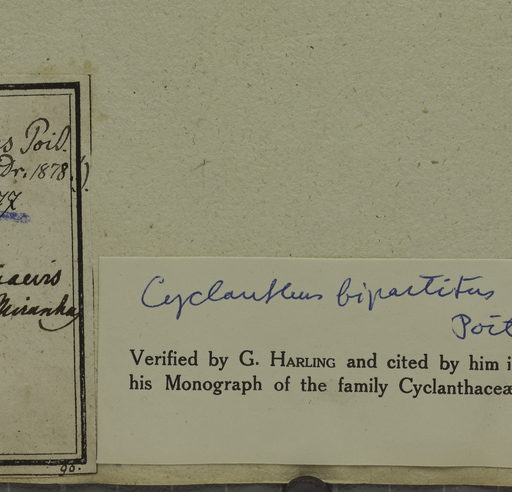 s Poit.
Dr. 1878.)
77
Miranha
90.
Cyclanthus bipartitus
Poit
Verified by G. HARLING and cited by him i
his Monograph of the family Cyclanthaceæ